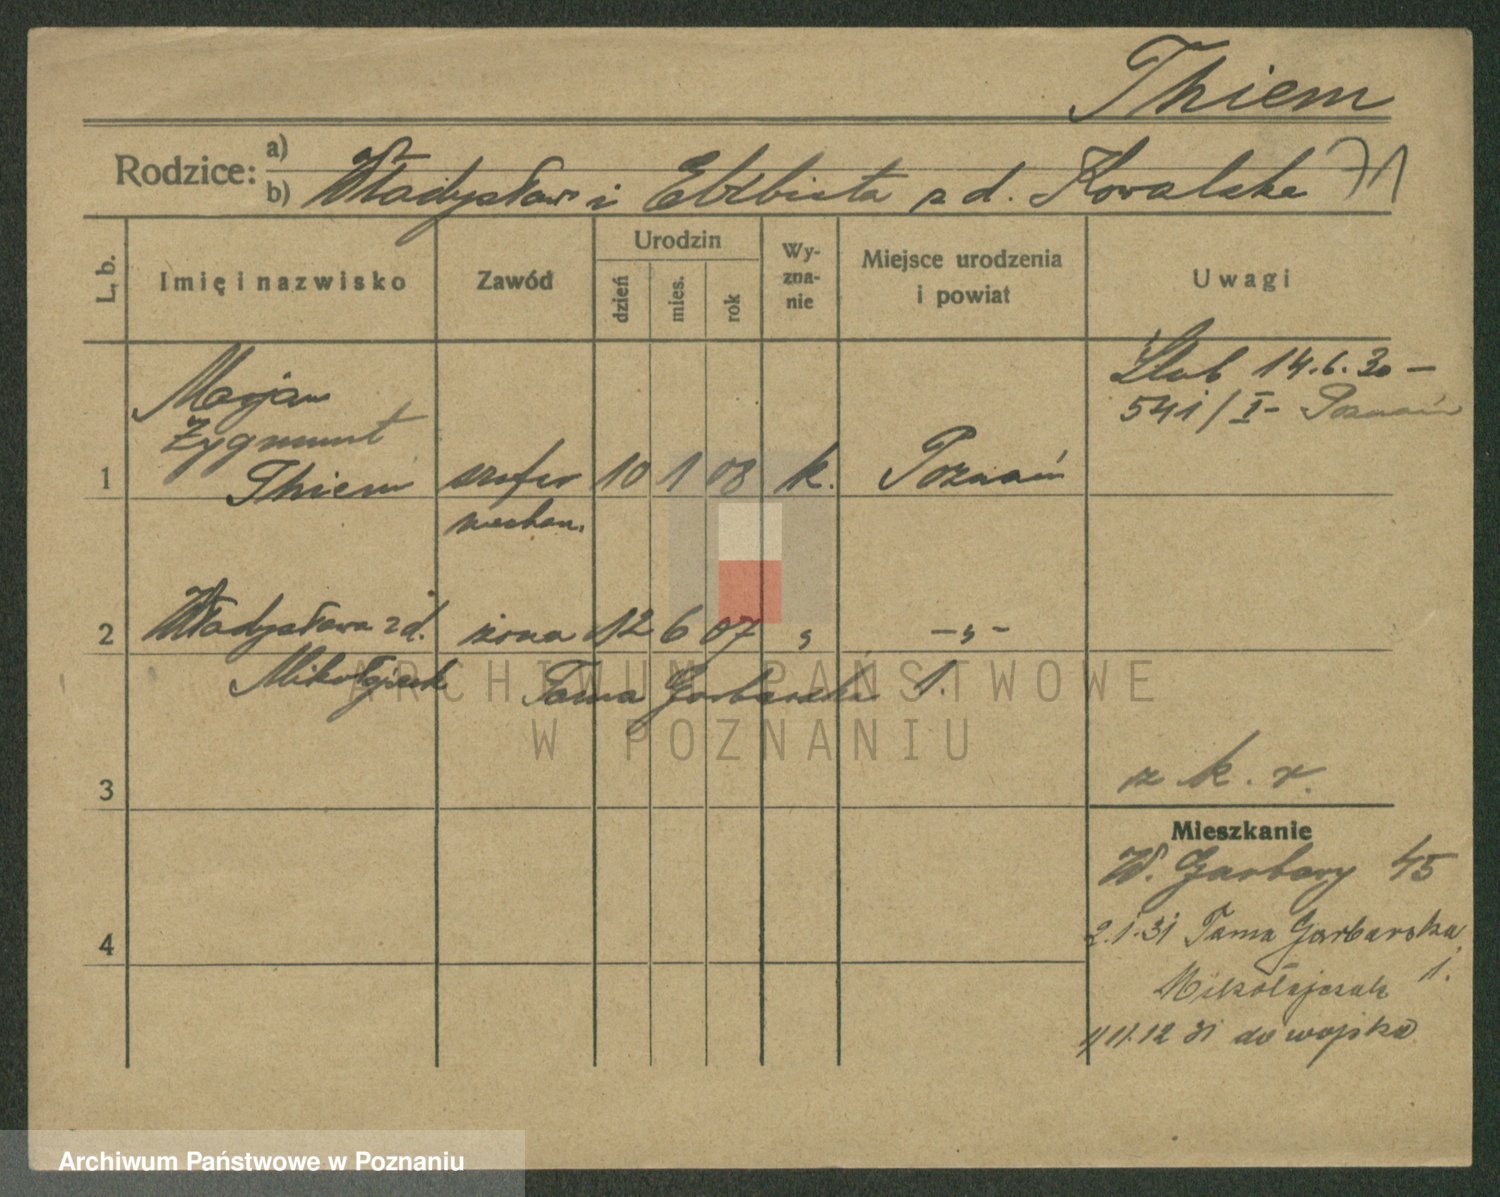 Thiem
Rodzice: a)
b) Władysław i Elżbieta z d. Kowalska 71
L. b.
Imię i nazwisko
Zawód
Urodzin
dzień
mies.
rok
Wy-
zna-
nie
Miejsce urodzenia
i powiat
Uwagi
Ślub 14.6.30 –
541/I – Poznań
Marjan
Zygmunt
1 Thiem szofer 10 1 08 k. Poznań
mechan.
2 Władysława z d. żona 12 6 07 „ – „ –
Mikołajczak Tama Garbarska 1.
ARCHIWUM PAŃSTWOWE
W POZNANIU
3
z k. r.
Mieszkanie
W. Garbary 45
2.1.31 Tama Garbarska
Mikołajczak 1.
11.12 31 do wojska
4
Archiwum Państwowe w Poznaniu